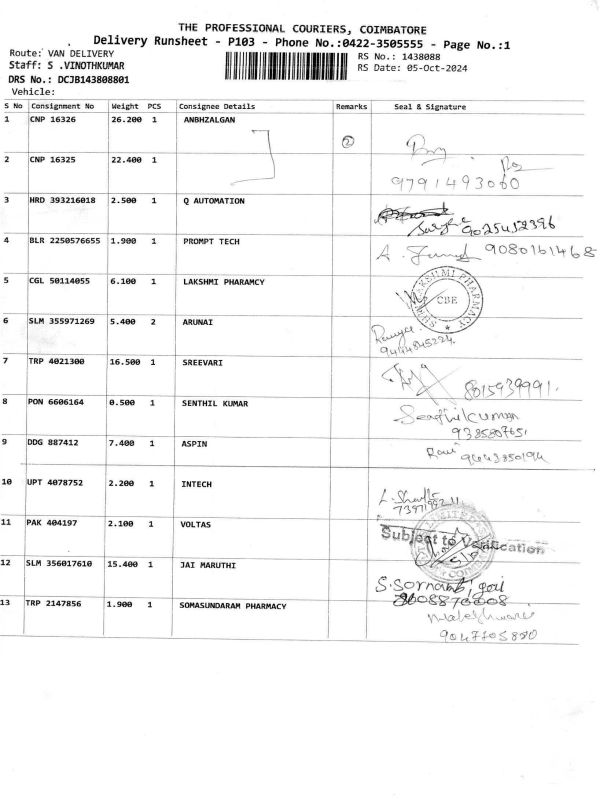 THE PROFESSIONAL COURIERS, COIMBATORE
Delivery Runsheet - P103 - Phone No.:0422-3505555 - Page No.:1
Route: VAN DELIVERY
RS No.: 1438088
Staff: S .VINOTHKUMAR
RS Date: 05-Oct-2024
DRS No.: DCJB143808801
Vehicle:
S No Consignment No Weight PCS Consignee Details Remarks Seal & Signature
1 CNP 16326 26.200 1 ANBHZALGAN
2
2 CNP 16325 22.400 1
9791493060
3 HRD 393216018 2.500 1 Q AUTOMATION
9025412396
4 BLR 2250576655 1.900 1 PROMPT TECH
9080161468
5 CGL 50114055 6.100 1 LAKSHMI PHARAMCY
LAKSHMI PHARMACY
CBE
6 SLM 355971269 5.400 2 ARUNAI
7 TRP 4021300 16.500 1 SREEVARI
8015939991.
8 PON 6606164 0.500 1 SENTHIL KUMAR
Senthilkumar
9 DDG 887412 7.400 1 ASPIN
10 UPT 4078752 2.200 1 INTECH
11 PAK 404197 2.100 1 VOLTAS
Subject to Verification
12 SLM 356017610 15.400 1 JAI MARUTHI
13 TRP 2147856 1.900 1 SOMASUNDARAM PHARMACY
9047705880